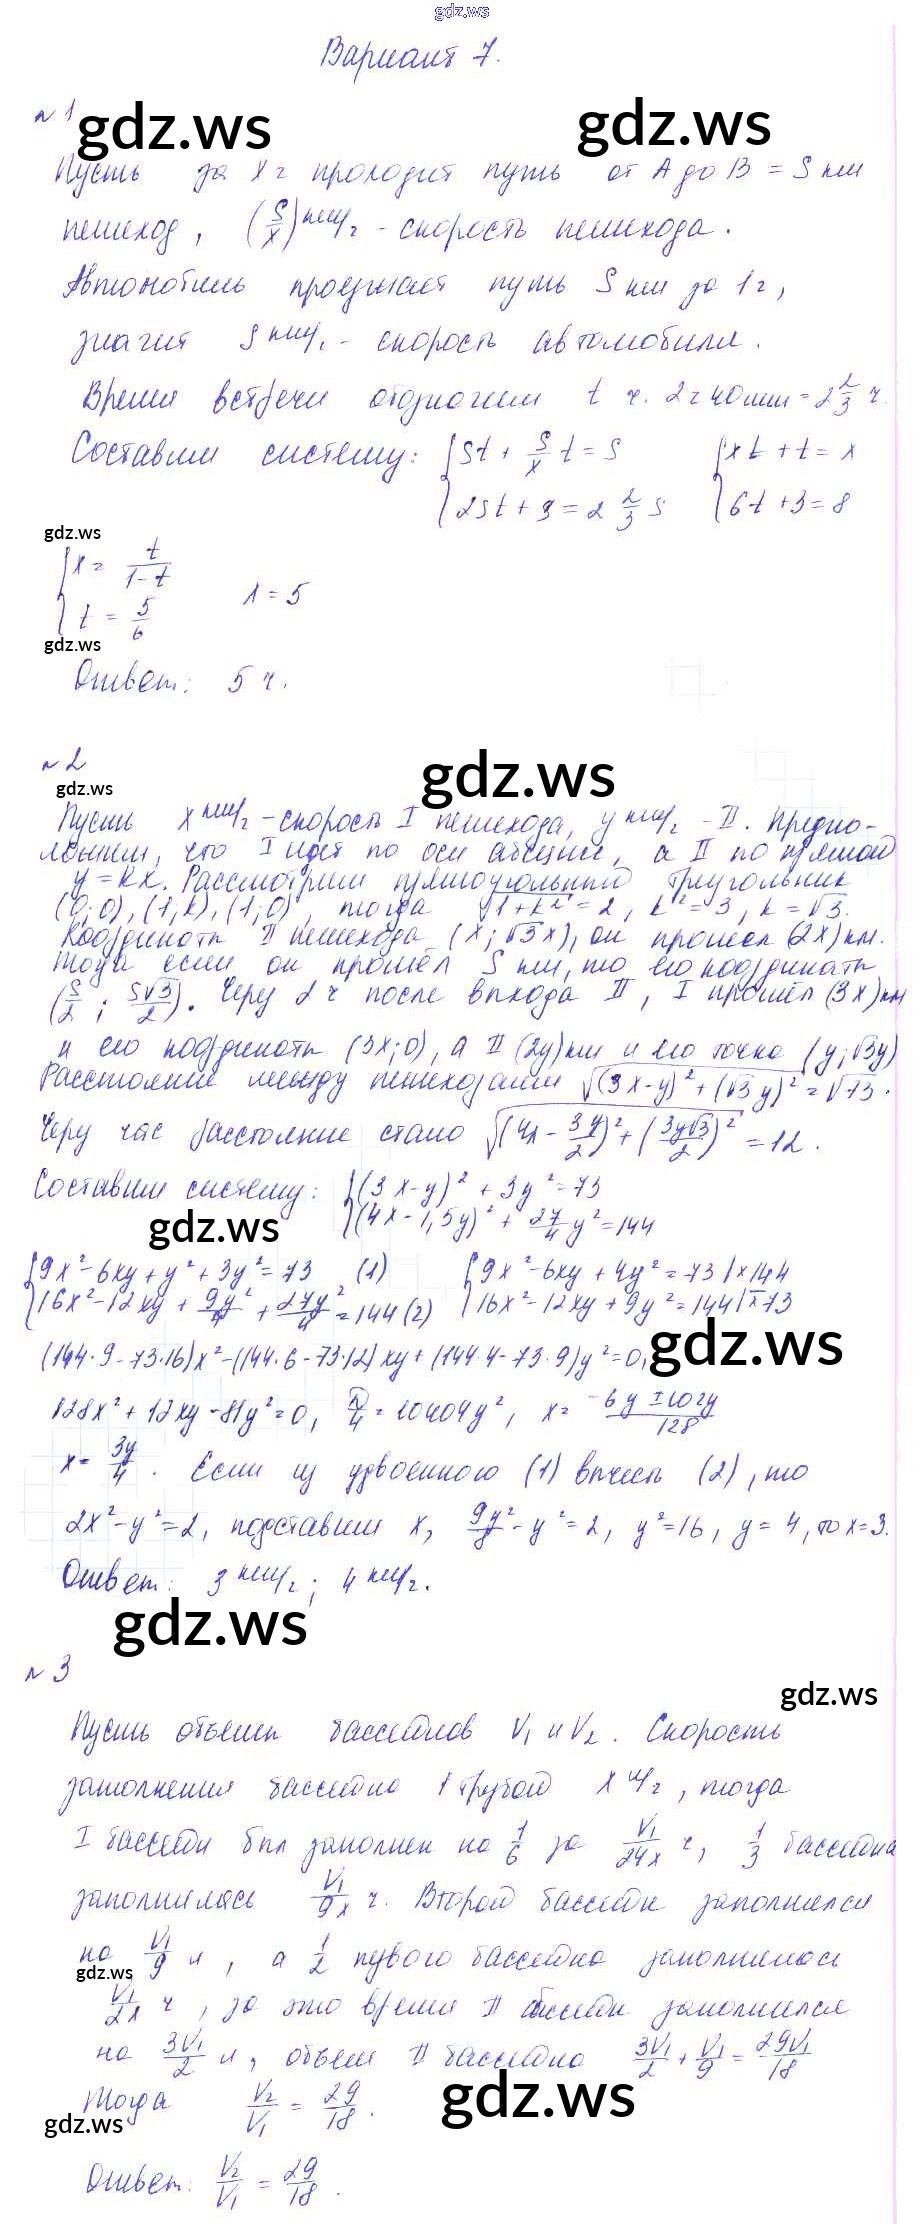 gdz.ws
Вариант 7.
№ 1
gdz.ws
gdz.ws
Пусть за x ч проходит путь от A до B = S км
пешеход, (S/x) км/ч - скорость пешехода.
Автомобиль проезжает путь S км за 1 ч,
значит S км/ч - скорость автомобиля.
Время встречи обозначим t ч. 2 ч 40 мин = 2 2/3 ч.
Составим систему: { St + S/x t = S { xt + t = x
{ 2St + 3 = 2 2/3 S { 6t + 3 = 8
gdz.ws
{ x = t/(1-t)
{ t = 5/6 x = 5
gdz.ws
Ответ: 5 ч.
№ 2
gdz.ws
gdz.ws
Пусть x км/ч - скорость I пешехода, y км/ч - II. Предпо-
ложим, что I идёт по оси абсцисс, а II по прямой
y = kx. Рассмотрим прямоугольный треугольник
(0;0), (1;k), (1;0), тогда √(1+k²) = 2, k² = 3, k = √3.
Координаты II пешехода (x; √3x), он прошёл (2x) км.
Тогда если он прошёл S км, то его координаты
(S/2 ; S√3/2). Через 2 ч после выхода II, I прошёл (3x) км
и его координаты (3x; 0), а II (2y) км и его точка (y; √3y)
Расстояние между пешеходами √((3x-y)² + (√3y)²) = √73.
Через час расстояние стало √((4x - 3y/2)² + (3y√3/2)²) = 12.
Составим систему: { (3x-y)² + 3y² = 73
{ (4x-1,5y)² + 27/4 y² = 144
gdz.ws
{ 9x² - 6xy + y² + 3y² = 73 (1) { 9x² - 6xy + 4y² = 73 | × 144
{ 16x² - 12xy + 9y²/4 + 27y²/4 = 144 (2) { 16x² - 12xy + 9y² = 144 | × 73
gdz.ws
(144·9 - 73·16)x² - (144·6 - 73·12)xy + (144·4 - 73·9)y² = 0,
128x² + 12xy - 81y² = 0, D/4 = 10404y², x = (-6y ± 102y)/128
x = 3y/4. Если из удвоенного (1) вычесть (2), то
2x² - y² = 2, подставим x, 9y²/8 - y² = 2, y² = 16, y = 4, то x = 3.
Ответ: 3 км/ч; 4 км/ч.
gdz.ws
№ 3
gdz.ws
Пусть объёмы бассейнов V₁ и V₂. Скорость
заполнения бассейна 1 трубой x л/ч, тогда
I бассейн был заполнен на 1/6 за V₁/24x ч, 1/3 бассейна
заполнилась V₁/9x ч. Второй бассейн заполнился
на V₁/9 л, а 1/2 первого бассейна заполнилась
gdz.ws
V₁/2x ч, за это время II бассейн заполнился
на 3V₁/2 л, объём II бассейна 3V₁/2 + V₁/9 = 29V₁/18
gdz.ws
Тогда V₂/V₁ = 29/18.
gdz.ws
Ответ: V₂/V₁ = 29/18.